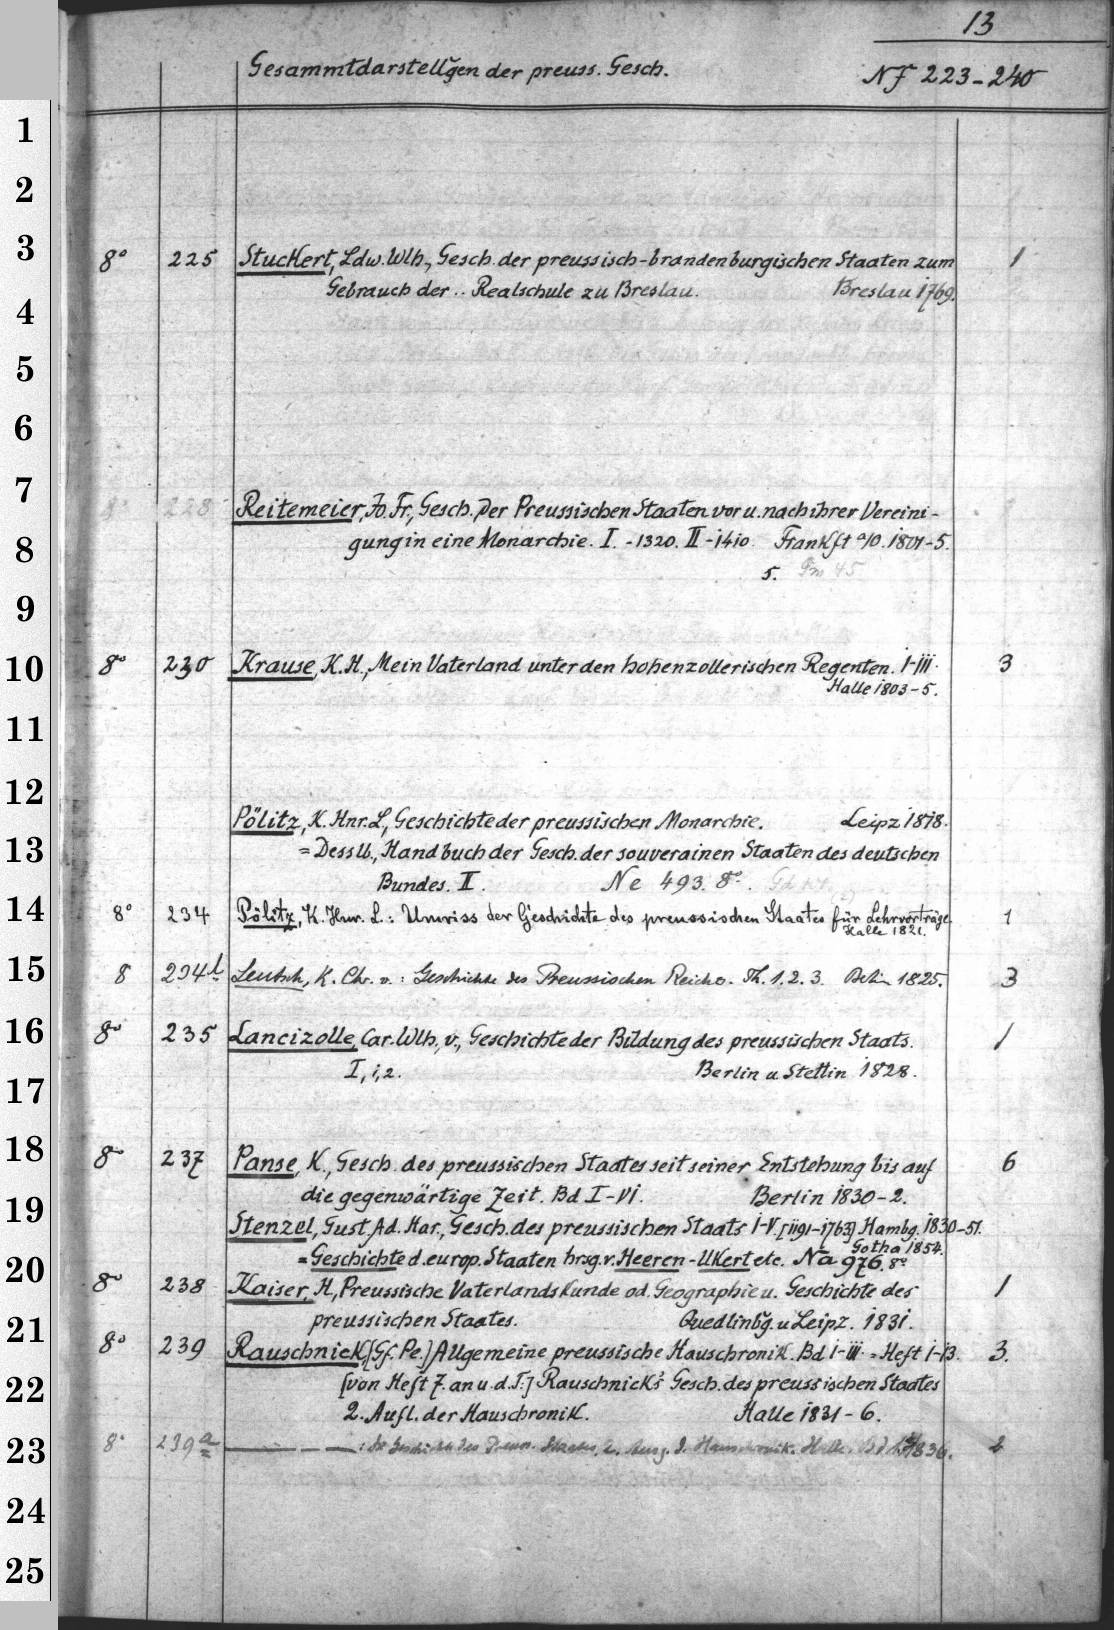 13
Gesammtdarstellg̃en der preuss. Gesch. NF 223-240
1
2
3
8° 225 Stuckert, Ldw. Wlh., Gesch. der preussisch-brandenburgischen Staaten zum 1
Gebrauch der .. Realschule zu Breslau. Breslau 1769.
4
5
6
7
8° 228 Reitemeier, Jo. Fr., Gesch. der Preussischen Staaten vor u. nach ihrer Vereini-
8
gung in eine Monarchie. I. -1320. II -1410. Frankft a/O. 1801-5.
5. 45
9
10
8° 230 Krause, K. H., Mein Vaterland unter den hohenzollerischen Regenten. I-III. 3
Halle 1803-5.
11
12
Pölitz, K. Hnr. L., Geschichte der preussischen Monarchie. Leipz 1818.
13
= Desslb., Handbuch der Gesch. der souverainen Staaten des deutschen
Bundes. II. Ne 493. 8°.
14
8° 234 Pölitz, K. Hnr. L.: Umriss der Geschichte des preussischen Staates für Lehrvorträge. 1
Halle 1821.
15
8 234b Leutsch, K. Chr. v.: Geschichte des Preussischen Reichs. Th. 1. 2. 3. Berlin 1825. 3
16
8° 235 Lancizolle, Car. Wlh. v., Geschichte der Bildung des preussischen Staats. 1
17
I, 1, 2. Berlin u Stettin 1828.
18
8° 237 Panse, K., Gesch. des preussischen Staates seit seiner Entstehung bis auf 6
19
die gegenwärtige Zeit. Bd I-VI. Berlin 1830-2.
Stenzel, Gust. Ad. Har., Gesch. des preussischen Staats I-V. [1191-1763] Hambg. 1830-51.
Gotha 1854.
= Geschichte d. europ. Staaten hrsg. v. Heeren-Ukert etc. Na 976. 8°
20
8° 238 Kaiser, H., Preussische Vaterlandskunde od. Geographie u. Geschichte des 1
21
preussischen Staates. Quedlinbg̃. u Leipz. 1831.
8° 239 Rauschnick, [Gf. Pe.] Allgemeine preussische Hauschronik. Bd I-III. = Heft 1-13. 3.
22
[von Heft 7. an u. d. T.] Rauschnick's Gesch. des preussischen Staates
2. Aufl. der Hauschronik. Halle 1831-6.
23
8° 239a — — — : Geschichte des Preuss. Staates. 2. Ausg. d. Hauschronik. Halle. 1836. 2
24
25